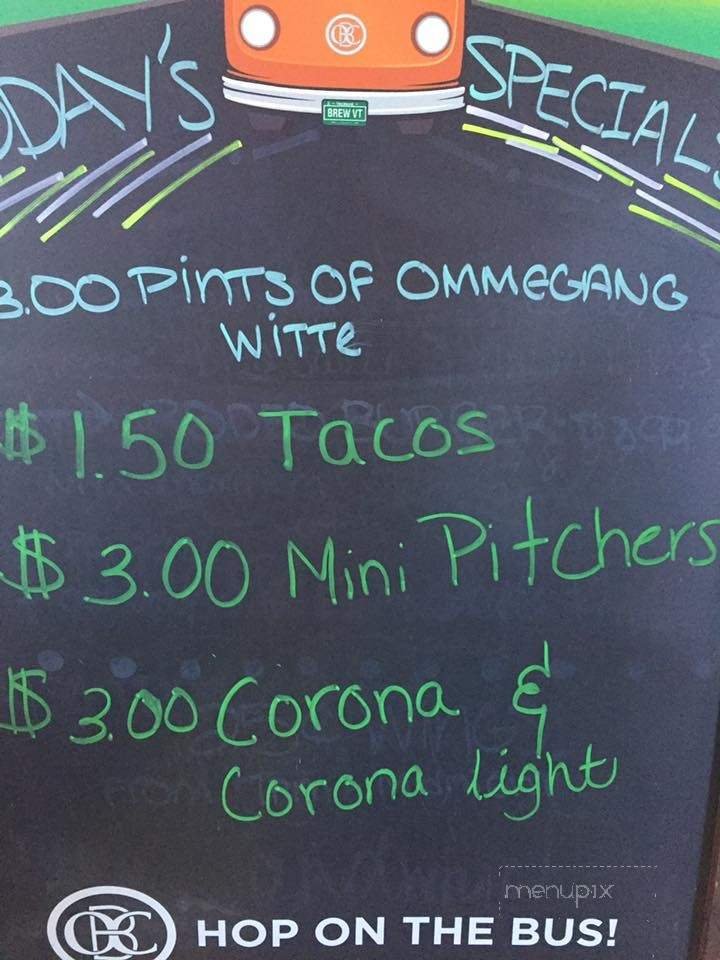 BREW VT
ODAY'S SPECIALS
3.00 PINTS OF OMMEGANG
WITTE
$1.50 Tacos
$3.00 Mini Pitchers
$3.00 Corona &
Corona Light
menupix
HOP ON THE BUS!